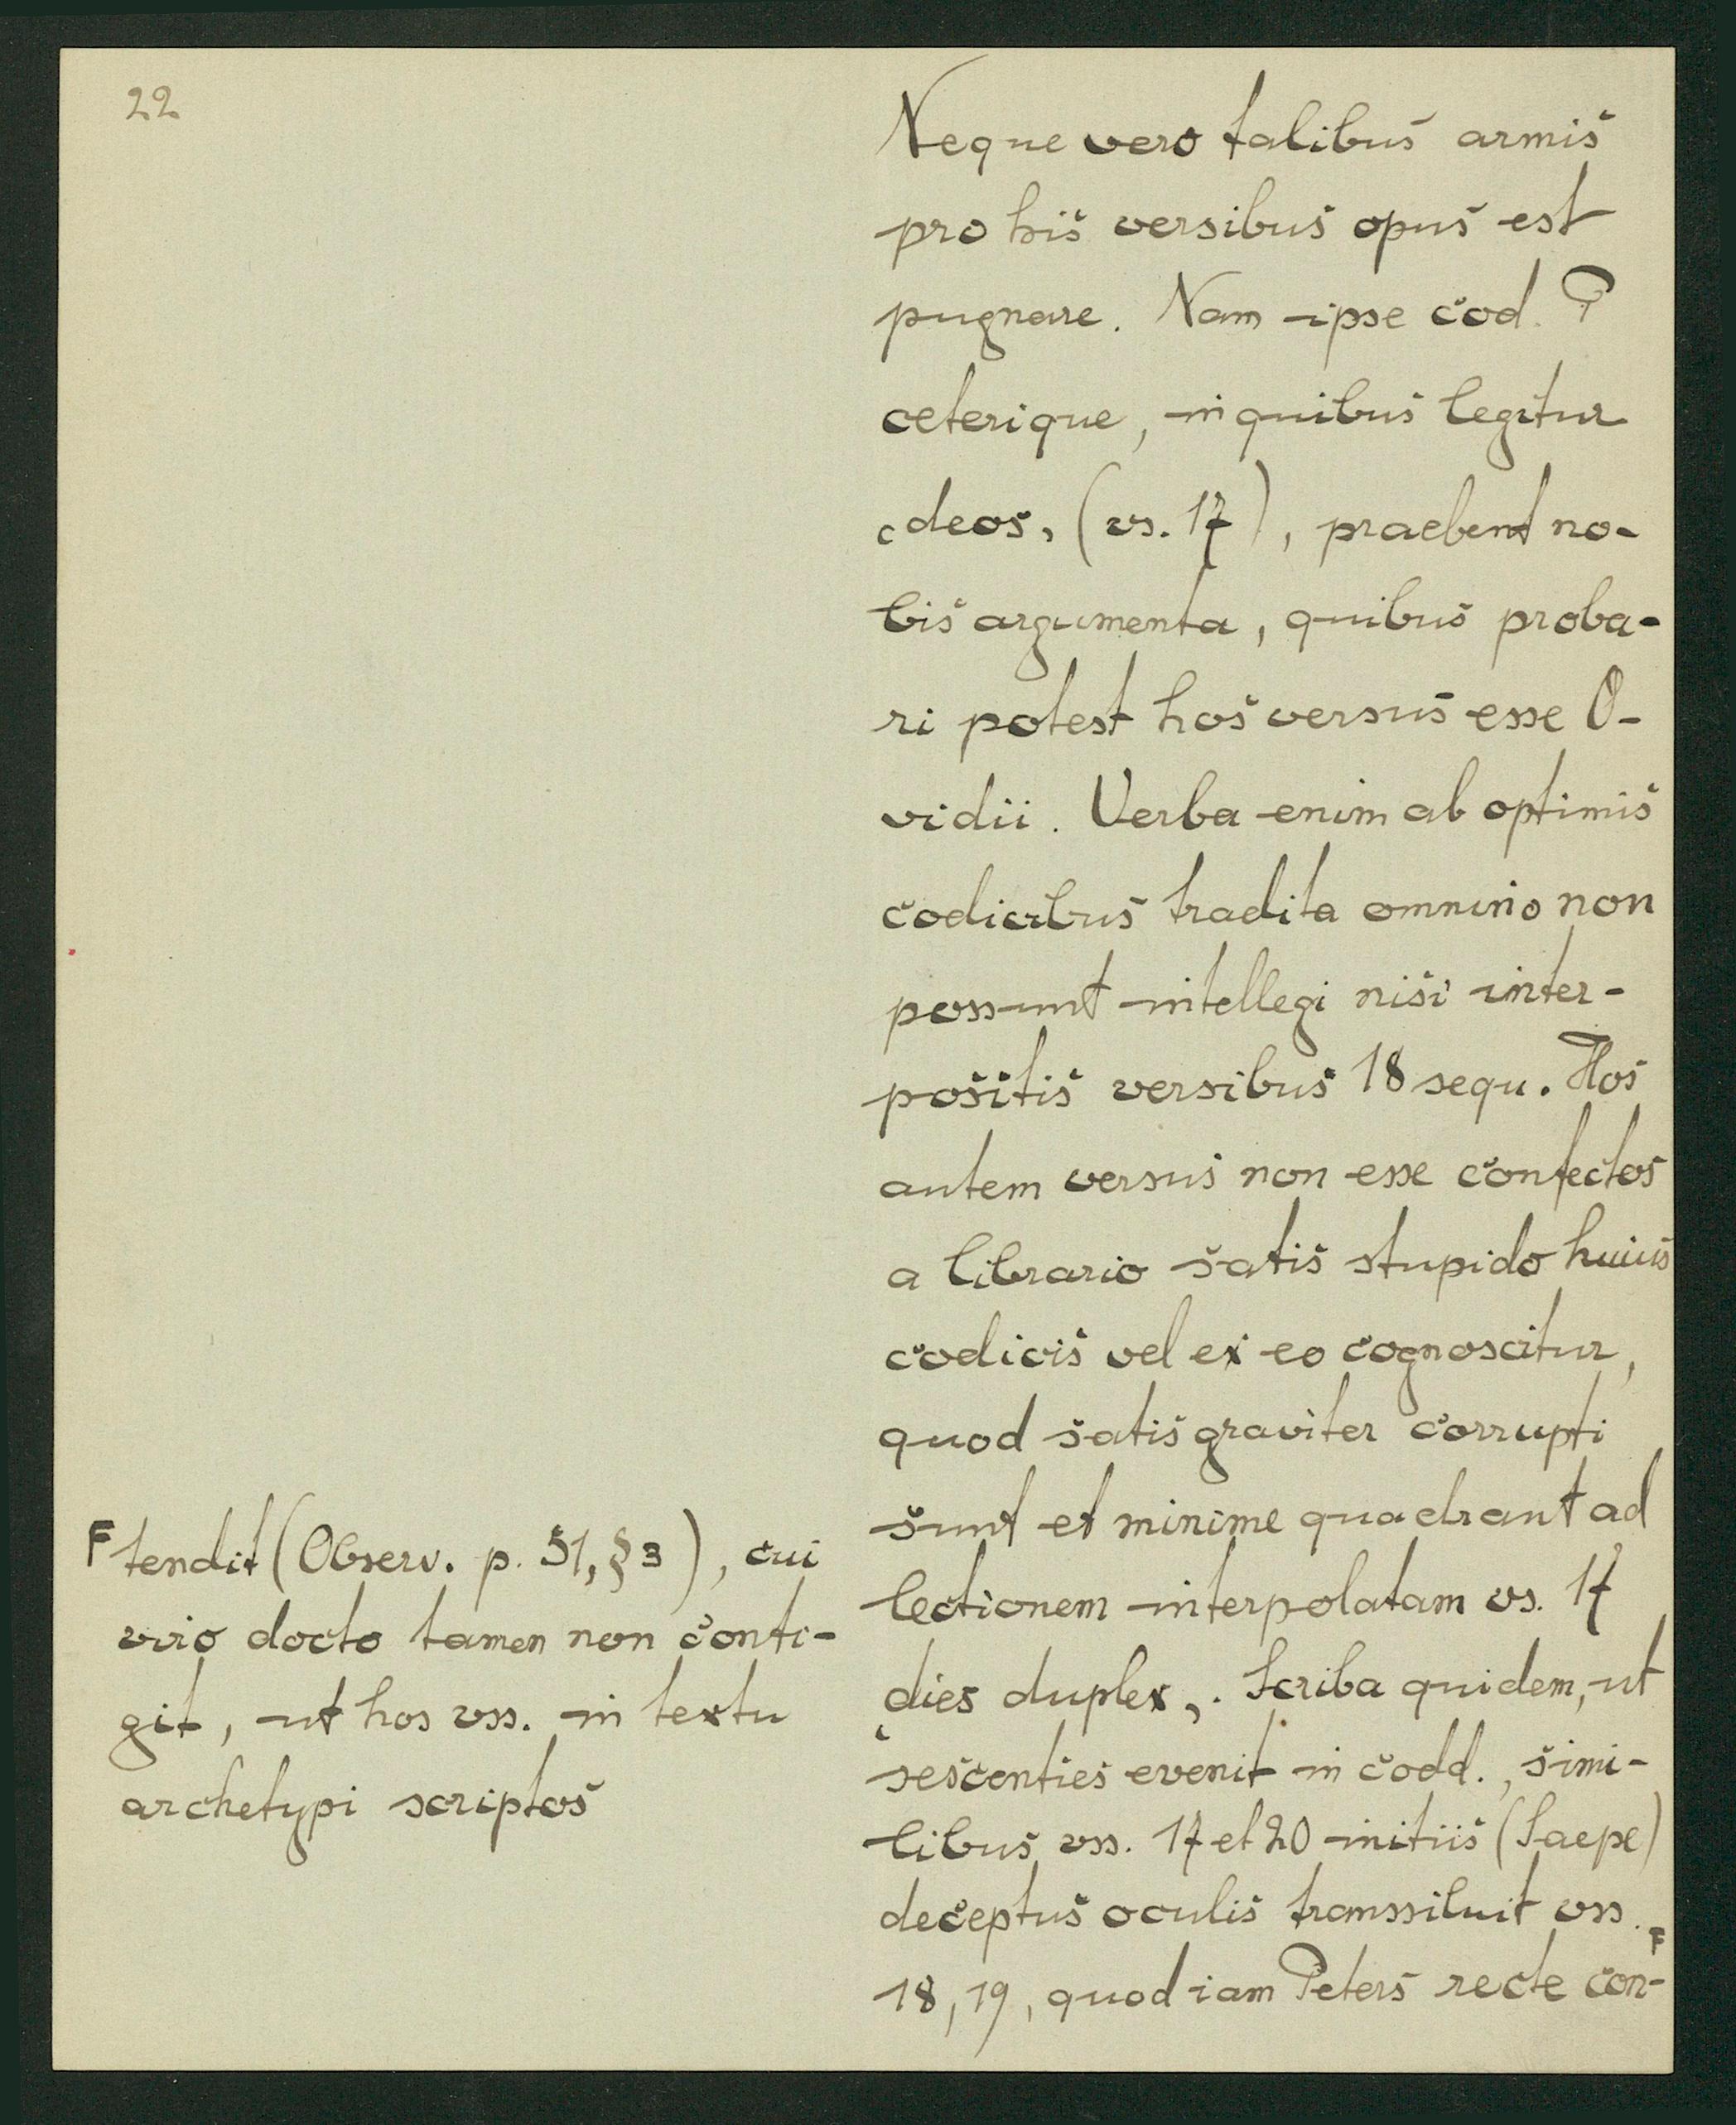 22
Neque vero talibus armis
pro his versibus opus est
pugnare. Nam ipse cod. P
ceterique, in quibus legitur
‹deos› (vs. 17), praebent no-
bis argumenta, quibus proba-
ri potest hos versus esse O-
vidii. Verba enim ab optimis
codicibus tradita omnino non
possunt intellegi nisi inter-
positis versibus 18 sequ. Hos
autem versus non esse confectos
a librario satis stupido huius
codicis vel ex eo cognoscitur,
quod satis graviter corrupti
sunt et minime quadrant ad
lectionem interpolatam vs. 17
‹dies duplex›. Scriba quidem, ut
sescenties evenit in codd., simi-
libus vss. 17 et 20 initiis (Saepe)
deceptus oculis transsiluit vss.
18, 19, quod iam Peters recte con-F
F tendit (Observ. p. 51, § 3), cui
viro docto tamen non conti-
git, ut hos vss. in textu
archetypi scriptos